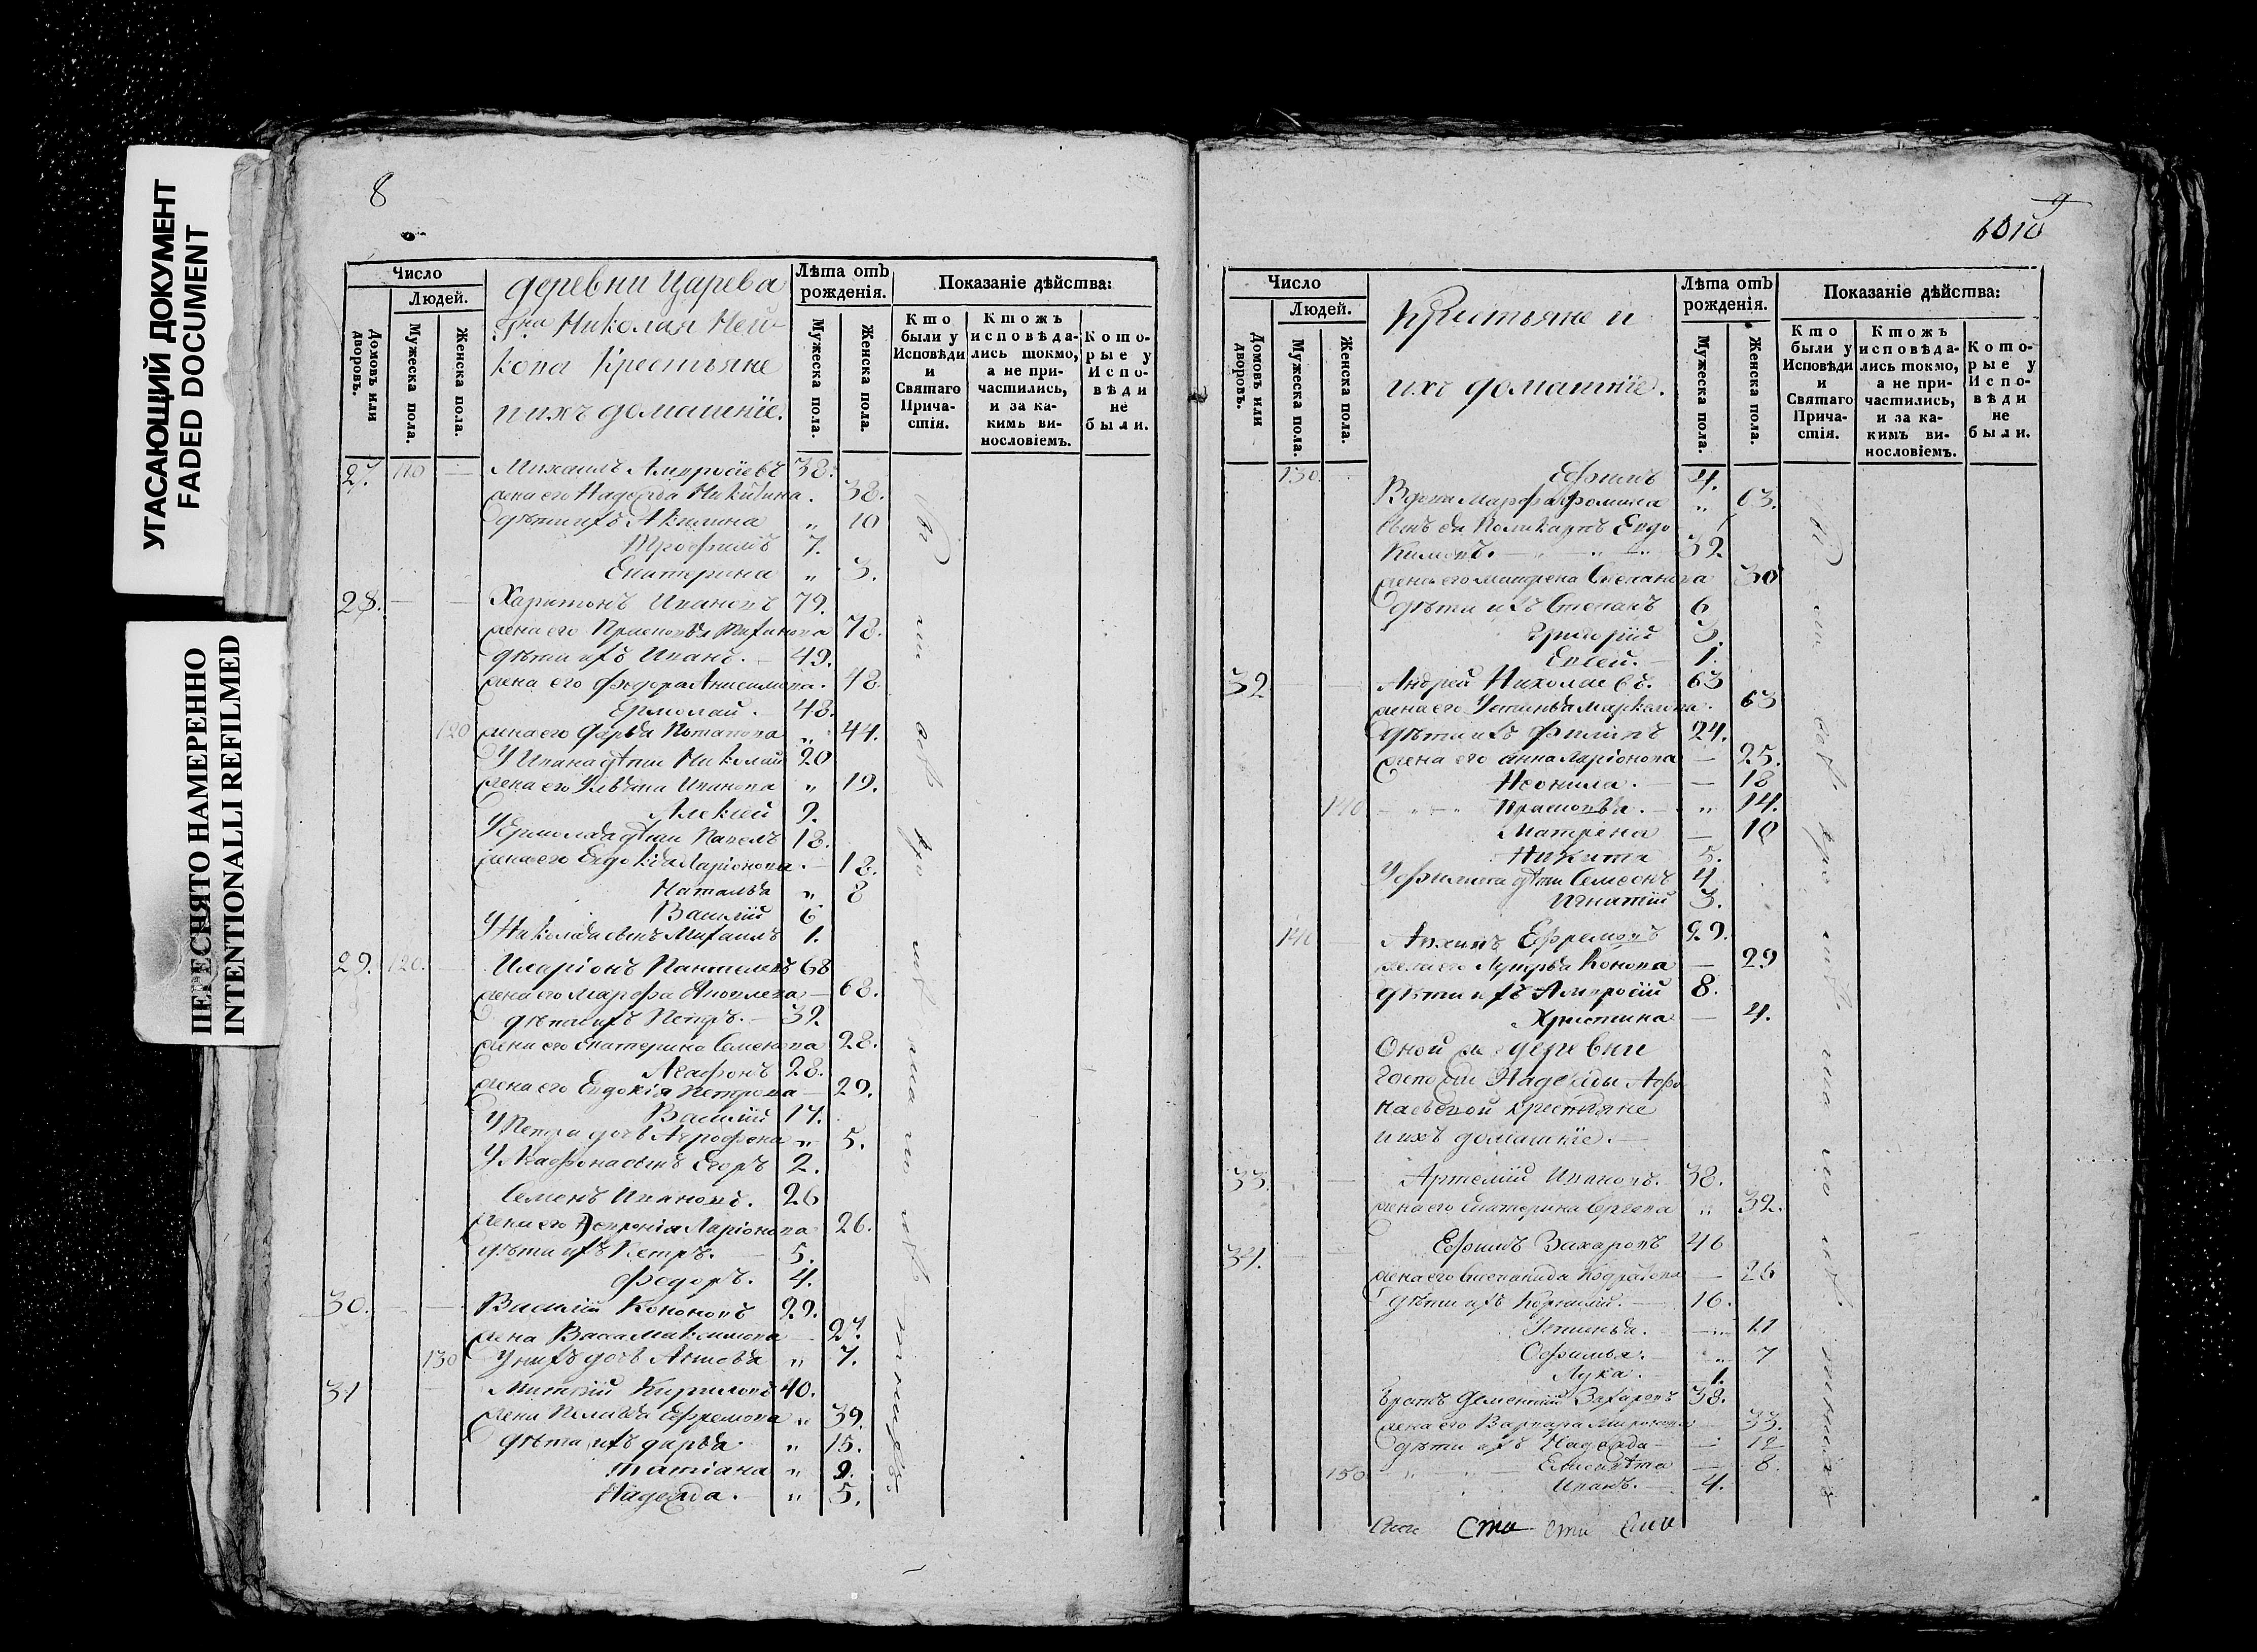 УГАСАЮЩИЙ ДОКУМЕНТ
FADED DOCUMENT
ПЕРЕСНЯТО НАМЕРЕННО
INTENTIONALLI REFILMED
8
Число
Людей.
Домовъ или дворовъ.
Мужеска пола.
Женска пола.
деревни Царева
Гна Николая Ней-
кова Крестьяне
и ихъ домашнiе.
Лѣта отъ рожденiя.
Мужеска пола.
Женска пола.
Показанiе дѣйства:
Кто были у Исповѣди и Святаго Прича-стiя.
Ктожъ исповѣда-лись токмо, а не при-частились, и за ка-кимъ ви-нословiемъ.
Кото-рые у Испо-вѣди не были.
27. 110 Михаилъ Амвросiевъ 38.
жена его Надежда Никитина. 38.
дѣти ихъ Акилина " 10
Трофимъ 7.
Екатерина " 3.
28. Харитонъ Ивановъ 79.
жена его Прасковья 78.
дѣти ихъ Иванъ. 49.
жена его Федора Анисимова. 48.
Ермолай. 48.
120 жена его Дарья Потапова " 44.
У Ивана дѣти Николай 20
жена его Ульяна Иванова " 19.
Алексѣй 9.
У Ермолая дѣти Павелъ 18.
жена его Евдокья Ларiонова. 18.
Наталья " 8
Василiй 6
У Николая сынъ Михаилъ 1.
29. 120. Иларiонъ 68
жена его Марфа 68.
дѣти ихъ Петръ. 39.
жена его Екатерина Семенова 28.
Агафонъ 28.
жена его Евдокiя Петрова 29.
Василiй 17.
У Петра дочь " 5.
У Агафона сынъ Егоръ 2.
Семенъ Ивановъ. 26
жена его Ларiонова 26.
дѣти ихъ Петръ. 5.
Федоръ. 4.
30. Василiй Кононовъ 29.
жена Васса Максимова 27.
130 У нихъ дочь " 7.
31 Кириловъ 40.
жена Пелагья Ефремова " 39.
дѣти ихъ Дарья " 15.
Татiана " 9.
Надежда. " 5.
10
Число
Людей.
Домовъ или дворовъ.
Мужеска пола.
Женска пола.
Крестьяне и
ихъ домашнiе.
Лѣта отъ рожденiя.
Мужеска пола.
Женска пола.
Показанiе дѣйства:
Кто были у Исповѣди и Святаго Прича-стiя.
Ктожъ исповѣда-лись токмо, а не при-частились, и за ка-кимъ ви-нословiемъ.
Кото-рые у Испо-вѣди не были.
130. Ефимъ 4.
Вдова Марфа Фомина " 63.
сынъ ея Поликарпъ Евдо-
кимовъ. 32
жена его Матрена Степанова 30
дѣти ихъ Степанъ 6
Григорiй 3.
Евсей. 1.
32 Андрей Николаевъ. 63
жена его Устинья Маркелова. 63
дѣти ихъ Филипъ 24.
жена его Анна Ларiонова 25.
Неонила. 18
140 Прасковья. " 14.
Матрена 10
Никита 5.
У Филипа дѣти Семеонъ 4
Игнатiй 3.
140 Архипъ Ефремовъ 29.
жена его Лукерья Конова 29
дѣти ихъ Амвросiй 8.
Христина 4.
Оной же деревни
Госпожи Надежды Афо
насьевой крестьяне
и ихъ домашнiе.
33. Артемiй Ивановъ. 38.
жена его Екатерина Сергеева " 32.
34. Ефимъ Захаровъ 46
жена его Степанида 26
дѣти ихъ Корнилiй. 16.
Устинья. 11
Офимья. " 7
Лука. 1.
Братъ Дементiй Захаровъ 38.
жена его Варвара Миронова 33.
дѣти ихъ Надежда 12
150 Елисавета 8.
Иванъ. 4.